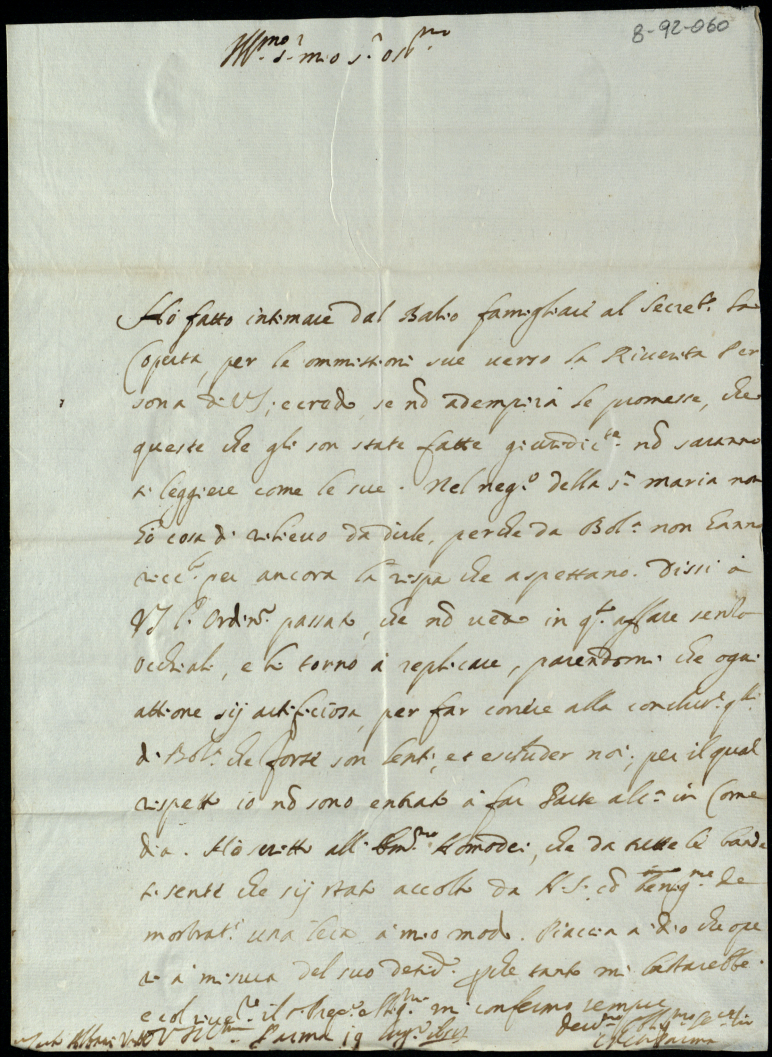 8-92-060
Ill.mo S. mio S.r oss.mo
Hò fatto intimare dal Balio famigliare al Secret.o La
Coperta, per le ommissioni sue verso la Riverita Per
sona di VS; e credo, se nõ adempirà le promesse, che
queste che gli son state fatte giuridic.te nõ saranno
sì leggiere come le sue. Nel neg.o della S.ra maria non
hò cosa di rilievo da dirle, perche da Bol.a non hanno
per ancora la rispa che aspettano. Dissi à
VS l'Ordin.o passato, che nõ vedo in q.to affare senza
occhiali, e le torno à replicare, parendomi che ogni
attione sij artificiosa, per far correre alla
di Bol.a che forse son lenti, et escluder noi; per il qual
rispetto io nõ sono entrato à far Parte alc.a in Come
dia. Hò scritto all' Homodei, che da tutte le bande
si sente che sij stato accolto da N.S. cõ benig.me de
mostrat.i una à mio modo. Piaccia à Dio che ope
ri à misura del suo desid.o che tanto mi bastarebbe.
e col mi confermo sempre
Parma 19